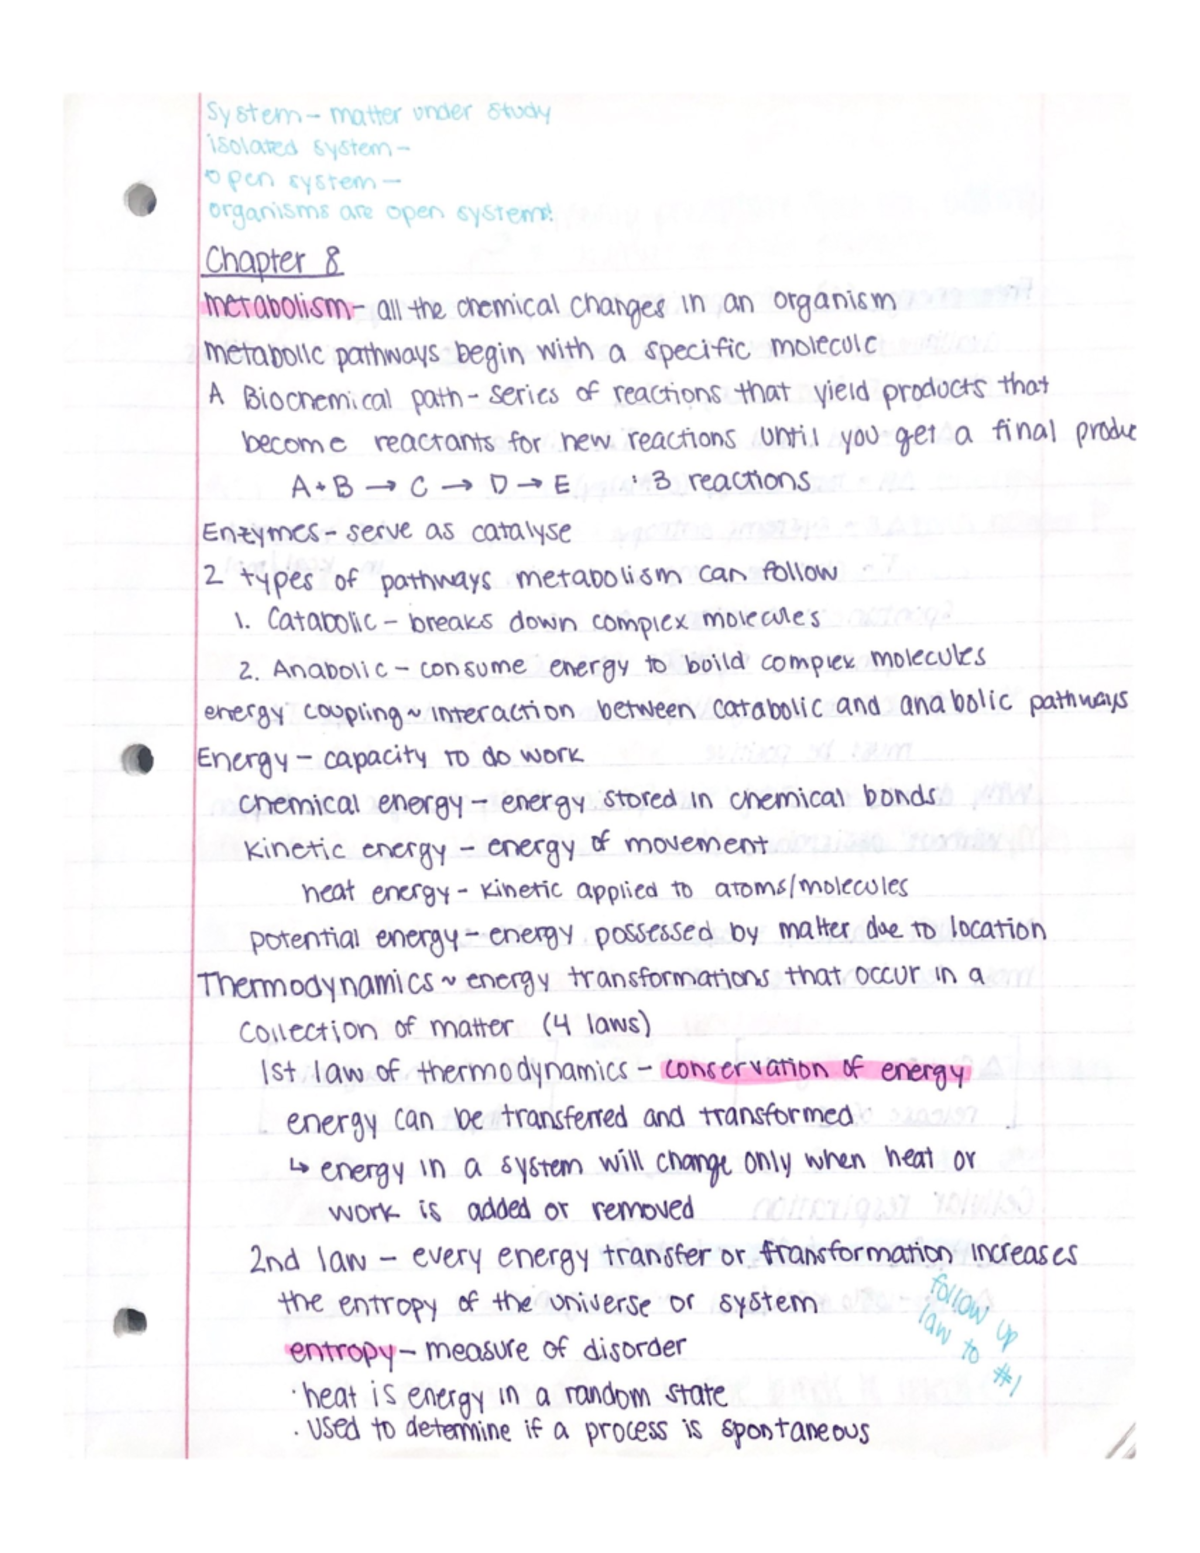 System - matter under study
isolated system -
open system -
organisms are open system!
Chapter 8
metabolism - all the chemical changes in an organism
metabolic pathways begin with a specific molecule
A Biochemical path - series of reactions that yield products that
become reactants for new reactions until you get a final produc
A + B → C → D → E : 3 reactions
Enzymes - serve as catalyse
2 types of pathways metabolism can follow
1. Catabolic - breaks down complex molecules
2. Anabolic - consume energy to build complex molecules
energy coupling ~ interaction between catabolic and anabolic pathways
Energy - capacity to do work
chemical energy - energy stored in chemical bonds
kinetic energy - energy of movement
heat energy - kinetic applied to atoms/molecules
potential energy - energy possessed by matter due to location
Thermodynamics ~ energy transformations that occur in a
collection of matter (4 laws)
1st law of thermodynamics - conservation of energy
energy can be transferred and transformed
↳ energy in a system will change only when heat or
work is added or removed
2nd law - every energy transfer or transformation increases
the entropy of the universe or system
follow up
law to #1
entropy - measure of disorder
· heat is energy in a random state
· used to determine if a process is spontaneous